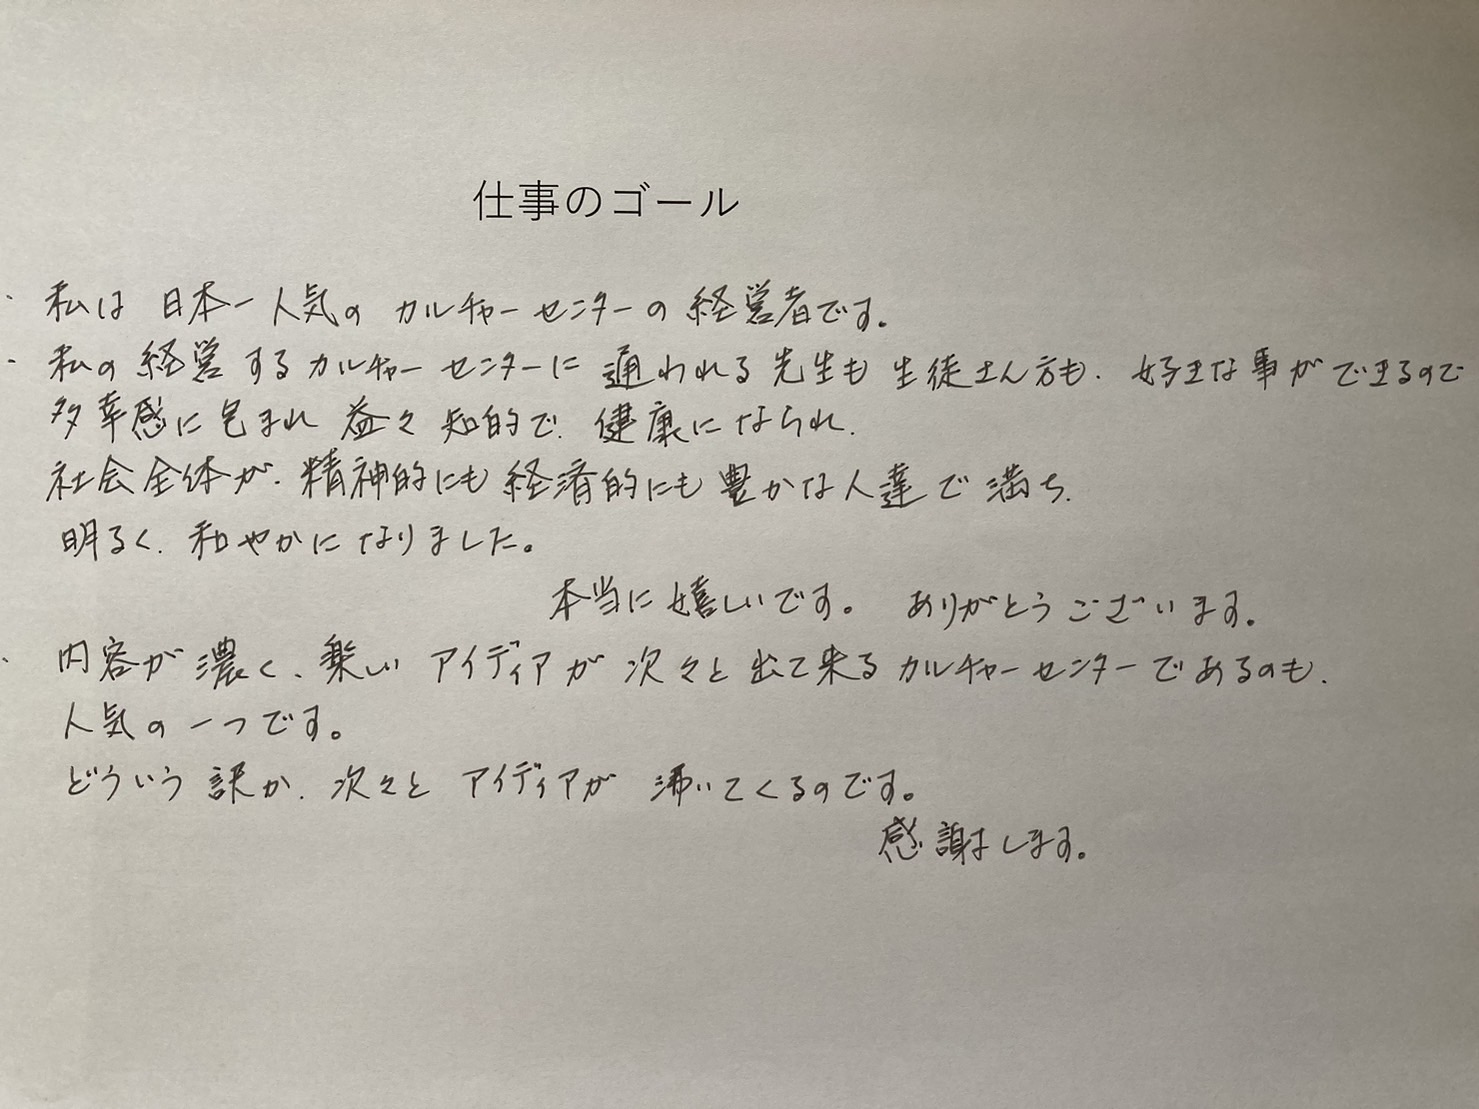 仕事のゴール
・私は 日本一人気の カルチャーセンターの経営者です。
・私の経営するカルチャーセンターに 通われる先生も 生徒さん方も、好きな事ができるので
多幸感に包まれ 益々 知的で、健康になられ、
社会全体が、精神的にも経済的にも豊かな人達で満ち、
明るく、和やかになりました。
本当に嬉しいです。 ありがとうございます。
、内容が濃く、楽しい アイディアが 次々と 出て来るカルチャーセンターであるのも、
人気の一つです。
どういう訳か、次々と アイディアが 沸いてくるのです。
感謝します。